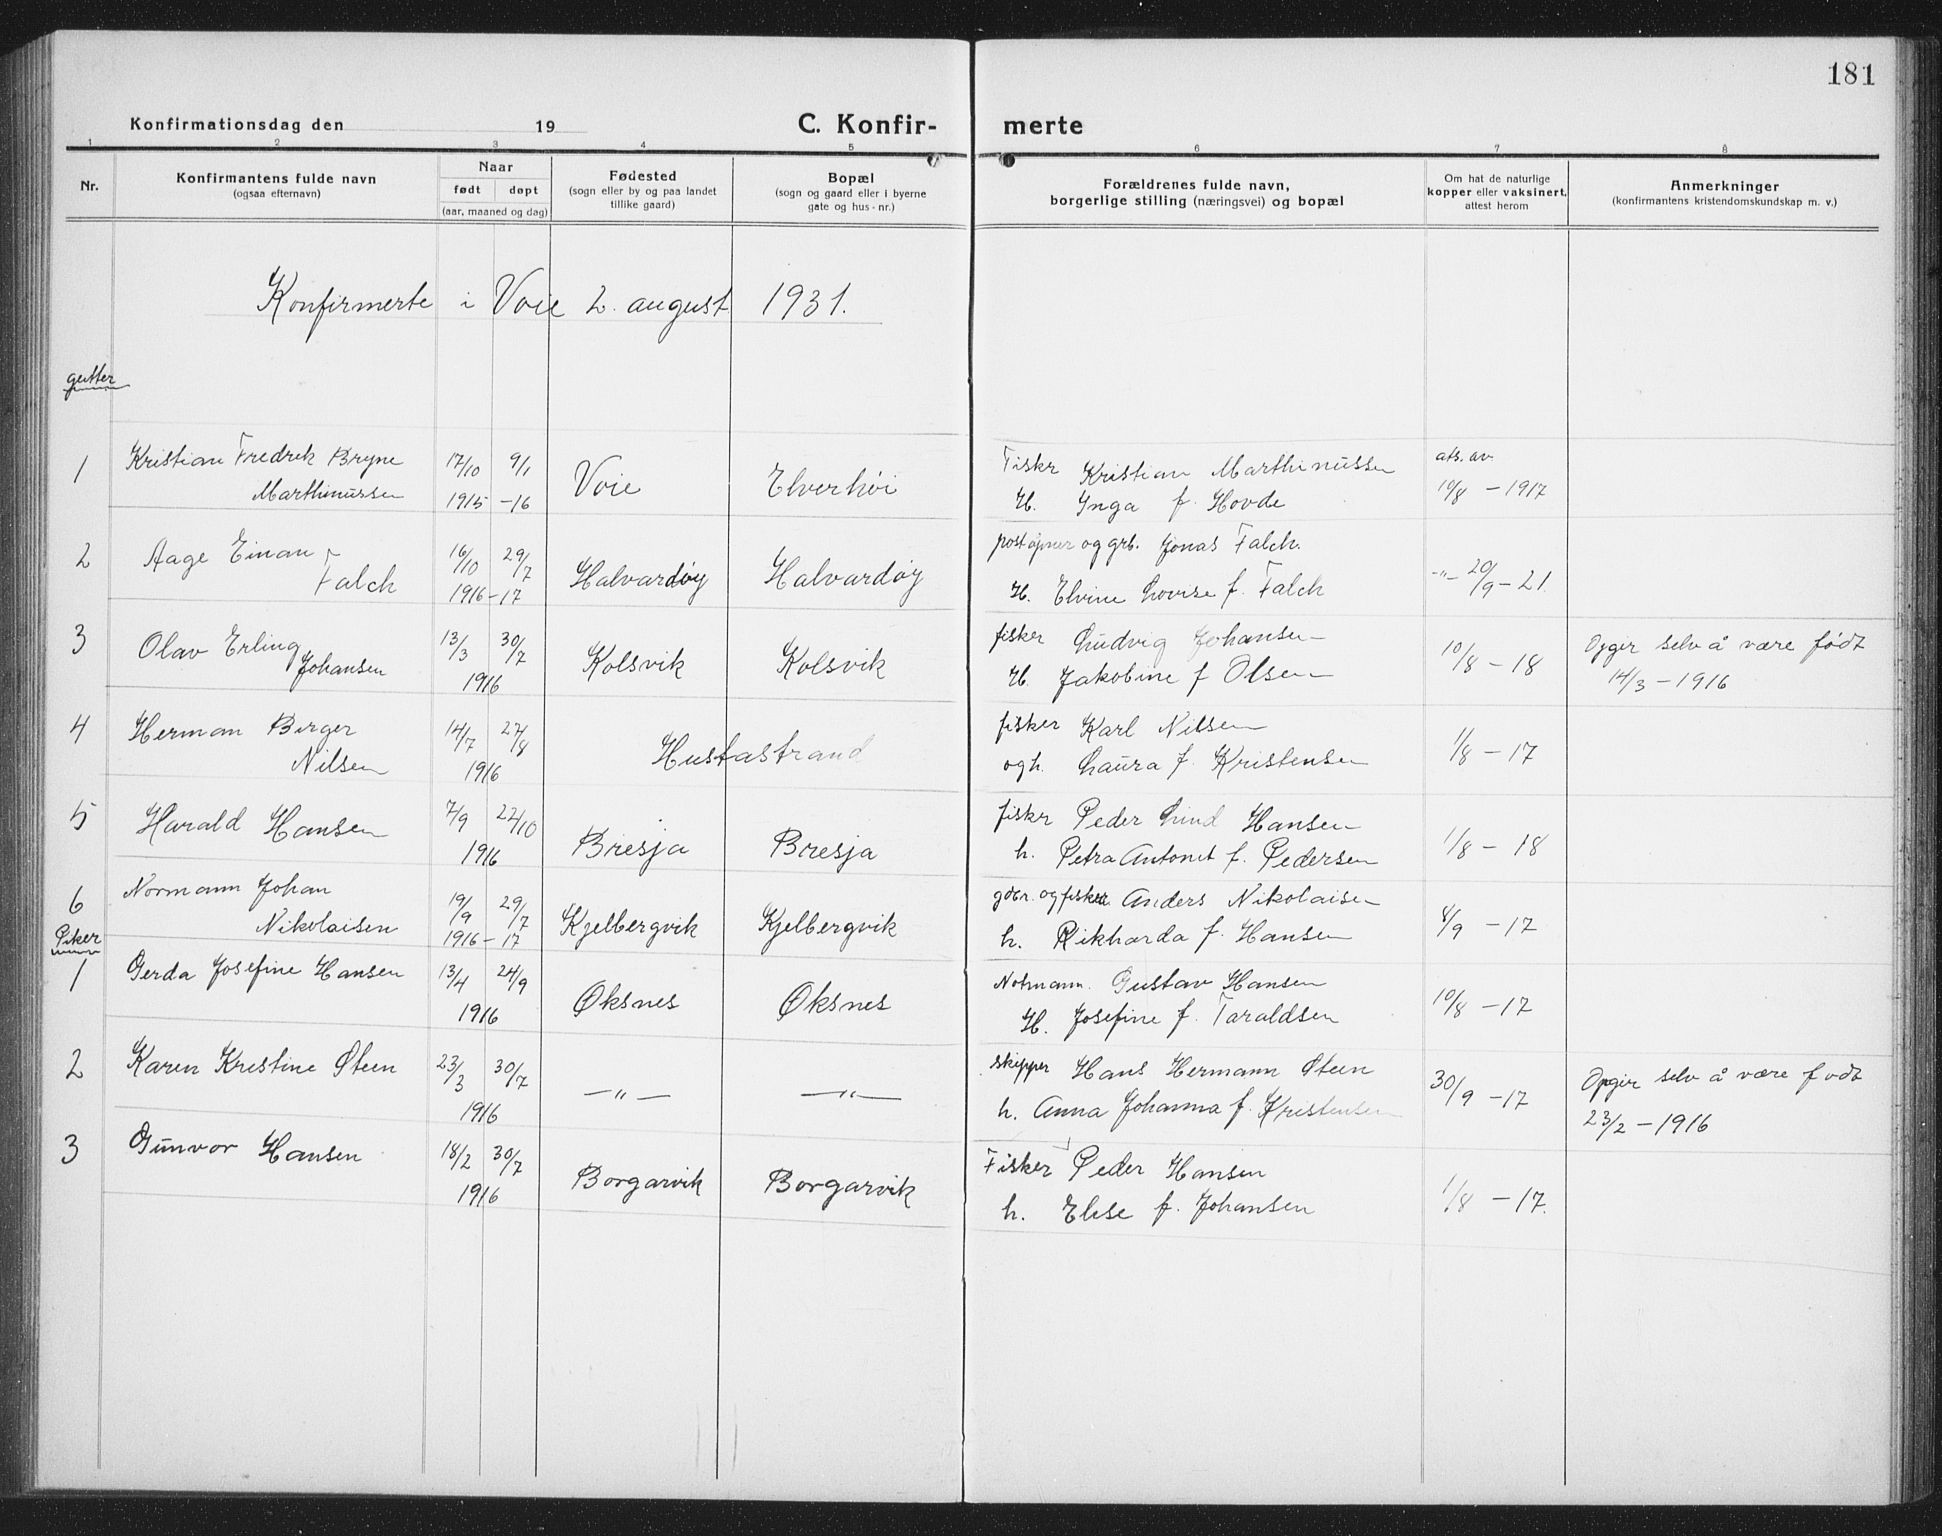 181
Konfirmationsdag den 19
C. Konfir- merte
1 2 3 4 5 6 7 8
Nr.
Konfirmantens fulde navn
(ogsaa efternavn)
Naar
født døpt
(aar, maaned og dag)
Fødested
(sogn eller by og paa landet
tillike gaard)
Bopæl
(sogn og gaard eller i byerne
gate og hus-nr.)
Forældrenes fulde navn,
borgerlige stilling (næringsvei) og bopæl
Om hat de naturlige
kopper eller vaksinert.
attest herom
Anmerkninger
(konfirmantens kristendomskundskap m. v.)
Konfirmerte i Voie 2. august 1931.
gutter
1 Kristian Fredrek Bryne 17/10 9/1 Voie Elverhöi Fiskr Kristian Marthinussen ats. av.
Marthinussen 1915 -16 H. Inga f. Hovde 10/8 - 1917
2 Aage Einan 16/10 29/7 Halvardøy Halvardøy postopner og grb. Jonas Falch.
Falch 1916 - 17 H. Elvine Lovise f. Falch -"- 20/9 - 21
3 Olav Erling 13/3 30/7 Kolsvik Kolsvik fisker Ludvig Johansen 10/8 - 18 Opgir selv å være født
Johansen 1916 H. Jakobine f Olsen 14/3 - 1916
4 Herman Birger 14/7 27/8 Hustastrand fisker Karl Nilsen 1/8 - 17
Nilsen 1916 og h. Laura f. Kristensen
5 Harald Hansen 7/9 22/10 Bresja Bresja fiskr Peder Lind Hansen 1/8 - 18
1916 h. Petra Antonet f. Pedersen
6 Normann Johan 19/9 29/7 Kjelbergvik Kjelbergvik gdbr. og fisker Anders Nikolaisen 4/9 - 17
Nikolaisen 1916 - 17 h. Rikharda f. Hansen
Piker
1 Gerda Josefine Hansen 13/4 24/9 Øksnes Øksnes Notmann. Gustav Hansen 10/8 - 17
1916 H. Josefine f. Taraldsen
2 Karen Kristine Steen 23/3 30/7 -"- -"- skipper Hans Hermann Steen 30/9 - 17 Opgir selv å være født
1916 h. Anna Johanna f. Kristensen 23/2 - 1916
3 Gunvor Hansen 18/2 30/7 Borgarvik Borgarvik Fisker Peder Hansen 1/8 - 17.
1916 h. Elise f. Johansen